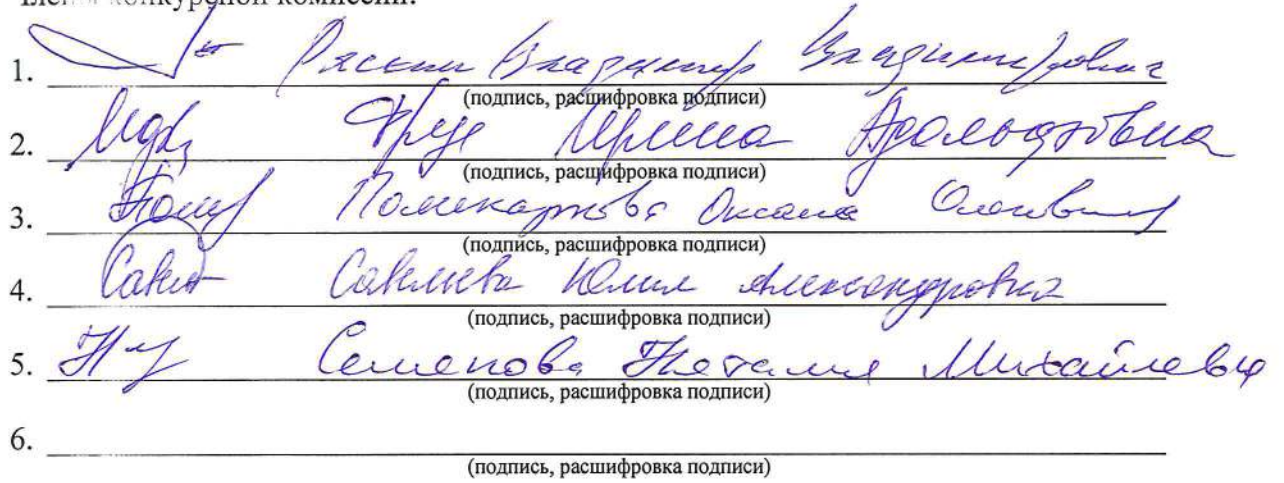 конкурсной комиссии:
1. Владимир Владимирович
(подпись, расшифровка подписи)
2. Ирина Адольфовна
(подпись, расшифровка подписи)
3. Оксана
(подпись, расшифровка подписи)
4. Савельева Юлия Александровна
(подпись, расшифровка подписи)
5. Семенова Наталия Михайловна
(подпись, расшифровка подписи)
6.
(подпись, расшифровка подписи)